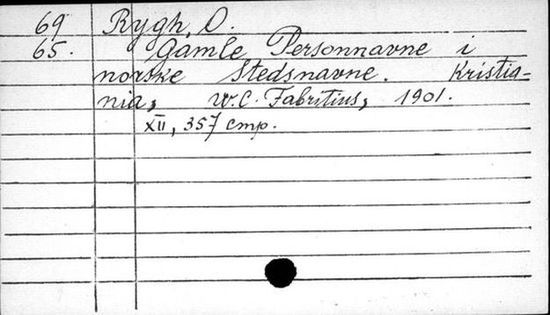 69 Rygh, O.
65. Gamle Personnavne i
norske Stedsnavne. Kristia-
nia, W.C. Fabritius, 1901.
XII, 357 cmp.